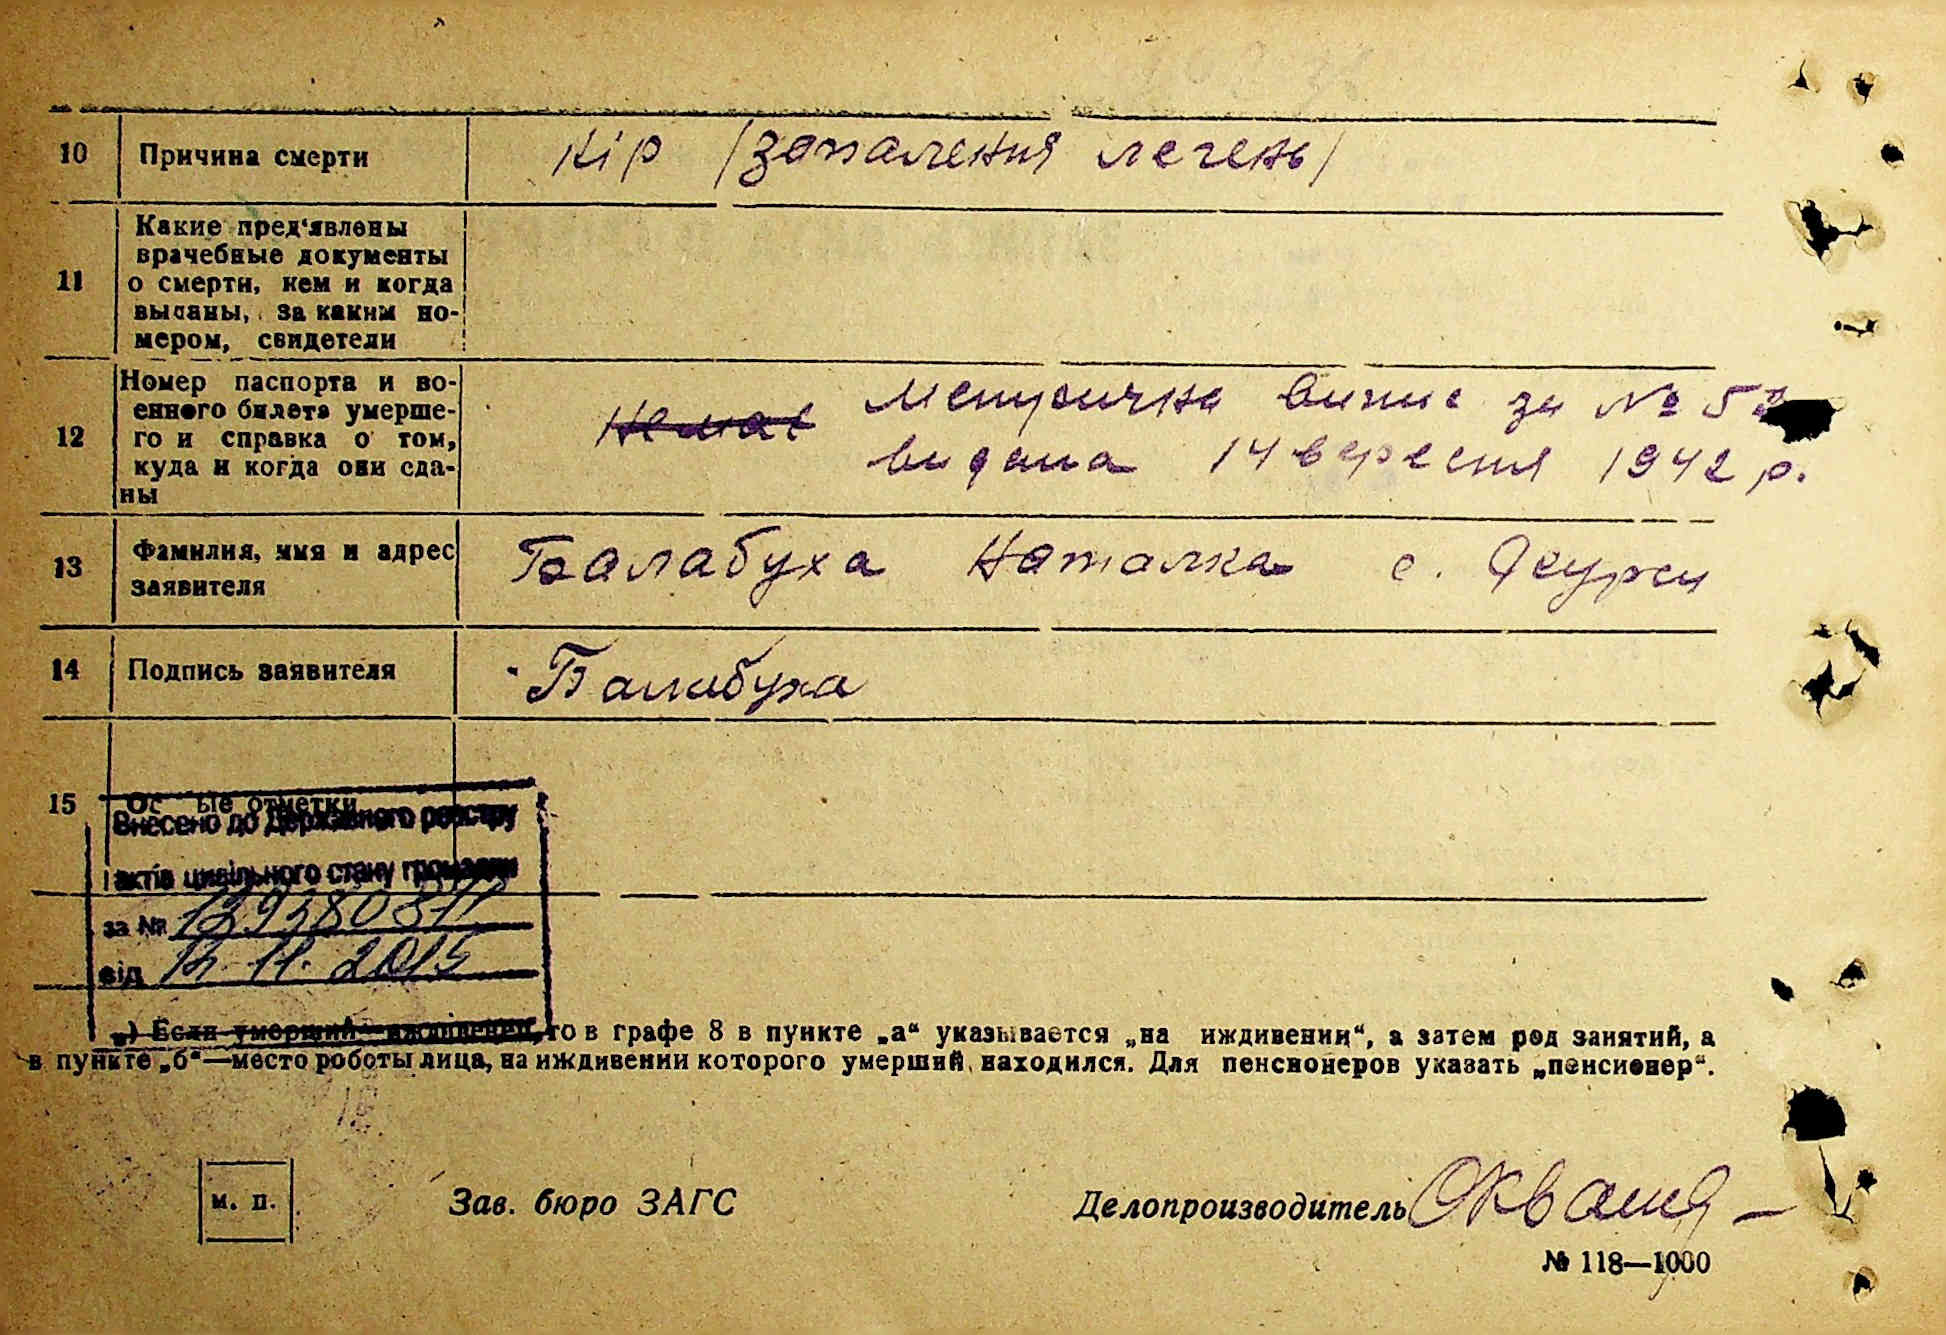 10 Причина смерти кір /запалення легень/
11 Какие пред‘явлены
врачебные документы
о смерти, кем и когда
выданы, за каким но-
мером, свидетели
12 Номер паспорта и во-
енного билета умерше-
го и справка о том,
куда и когда они сда-
ны
Немає Метрична випис за № 5
видана 14 вересня 1942 р.
13 Фамилия, имя и адрес
заявителя
Балабуха Наталка с.
14 Подпись заявителя Балабуха
15 Ос ые отметки
Внесено до Державного реєстру
актів цивільного стану громадян
за №
від 12.11.2015
„) Если умерший иждивенец, то в графе 8 в пункте „а“ указывается „на иждивении“, а затем род занятий, а
в пункте „б“—место роботы лица, на иждивении которого умерший находился. Для пенсионеров указать „пенсионер“.
м. п. Зав. бюро ЗАГС Делопроизводитель
№ 118—1000